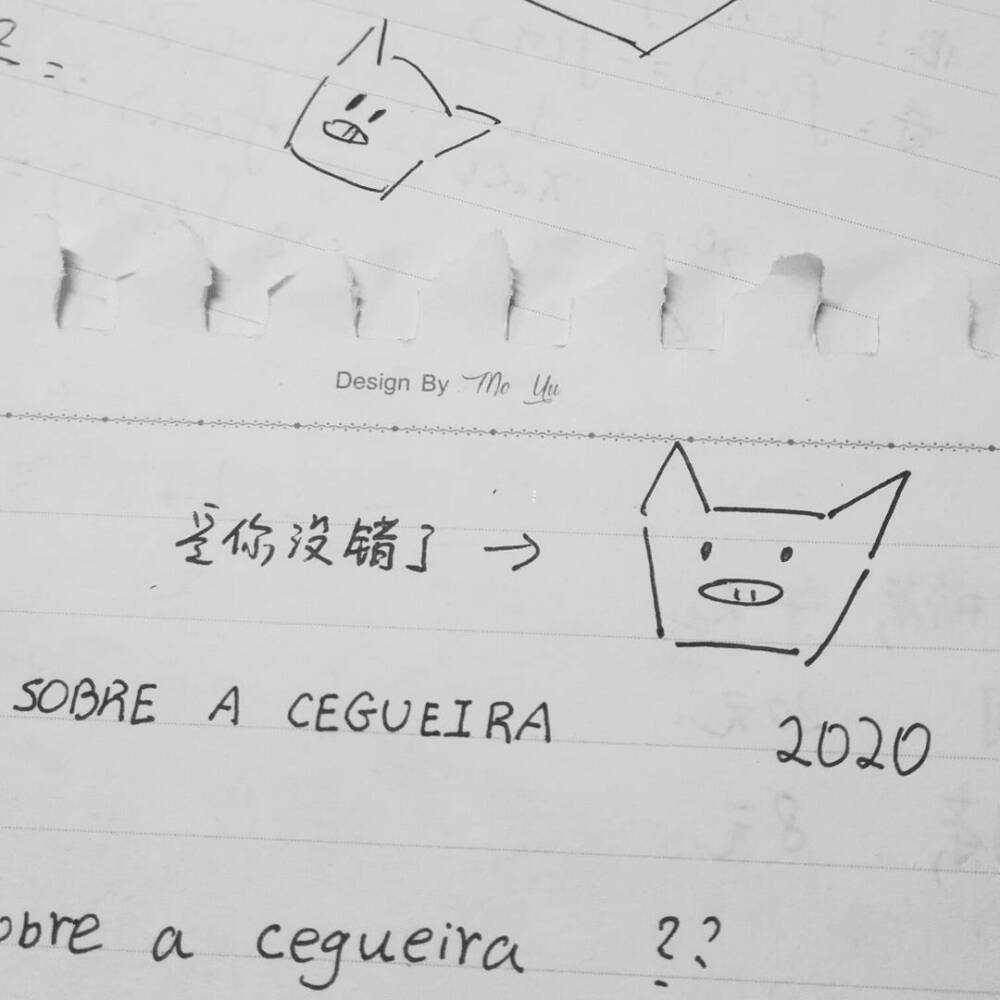 2 =
Design By Mo Yu
是你没错了 →
SOBRE A CEGUEIRA 2020
obre a cegueira ??